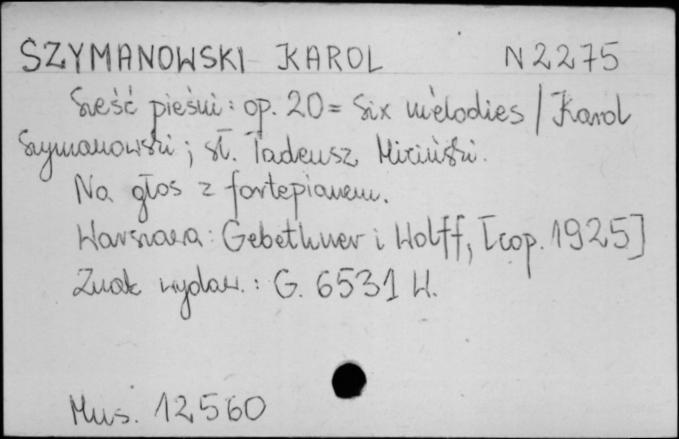 SZYMANOWSKI KAROL N 2275
Sześć pieśni : op. 20 = Six mélodies / Karol
Szymanowski ; sł. Tadeusz Miciński.
Na głos z fortepianem.
Warszawa : Gebethner i Wolff, [cop. 1925]
Znak wydaw. : G. 6531 W.
Mus. 12560